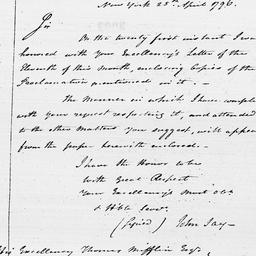 New York 25th April 1796.
Sir
On the twenty first instant I was
honored with your Excellency's Letter of the
Eleventh of this Month, enclosing Copies of the
Proclamation mentioned in it. -
The Manner in which I have complied
with your request respecting it, and attended
to the other Matters you suggest, will appear
from the paper herewith enclosed. -
I have the Honor to be
with Great Respect
Your Excellency's most obt.
& Hble Servt.
(Signed) John Jay -
His Excellency Thomas Mifflin Esqr.